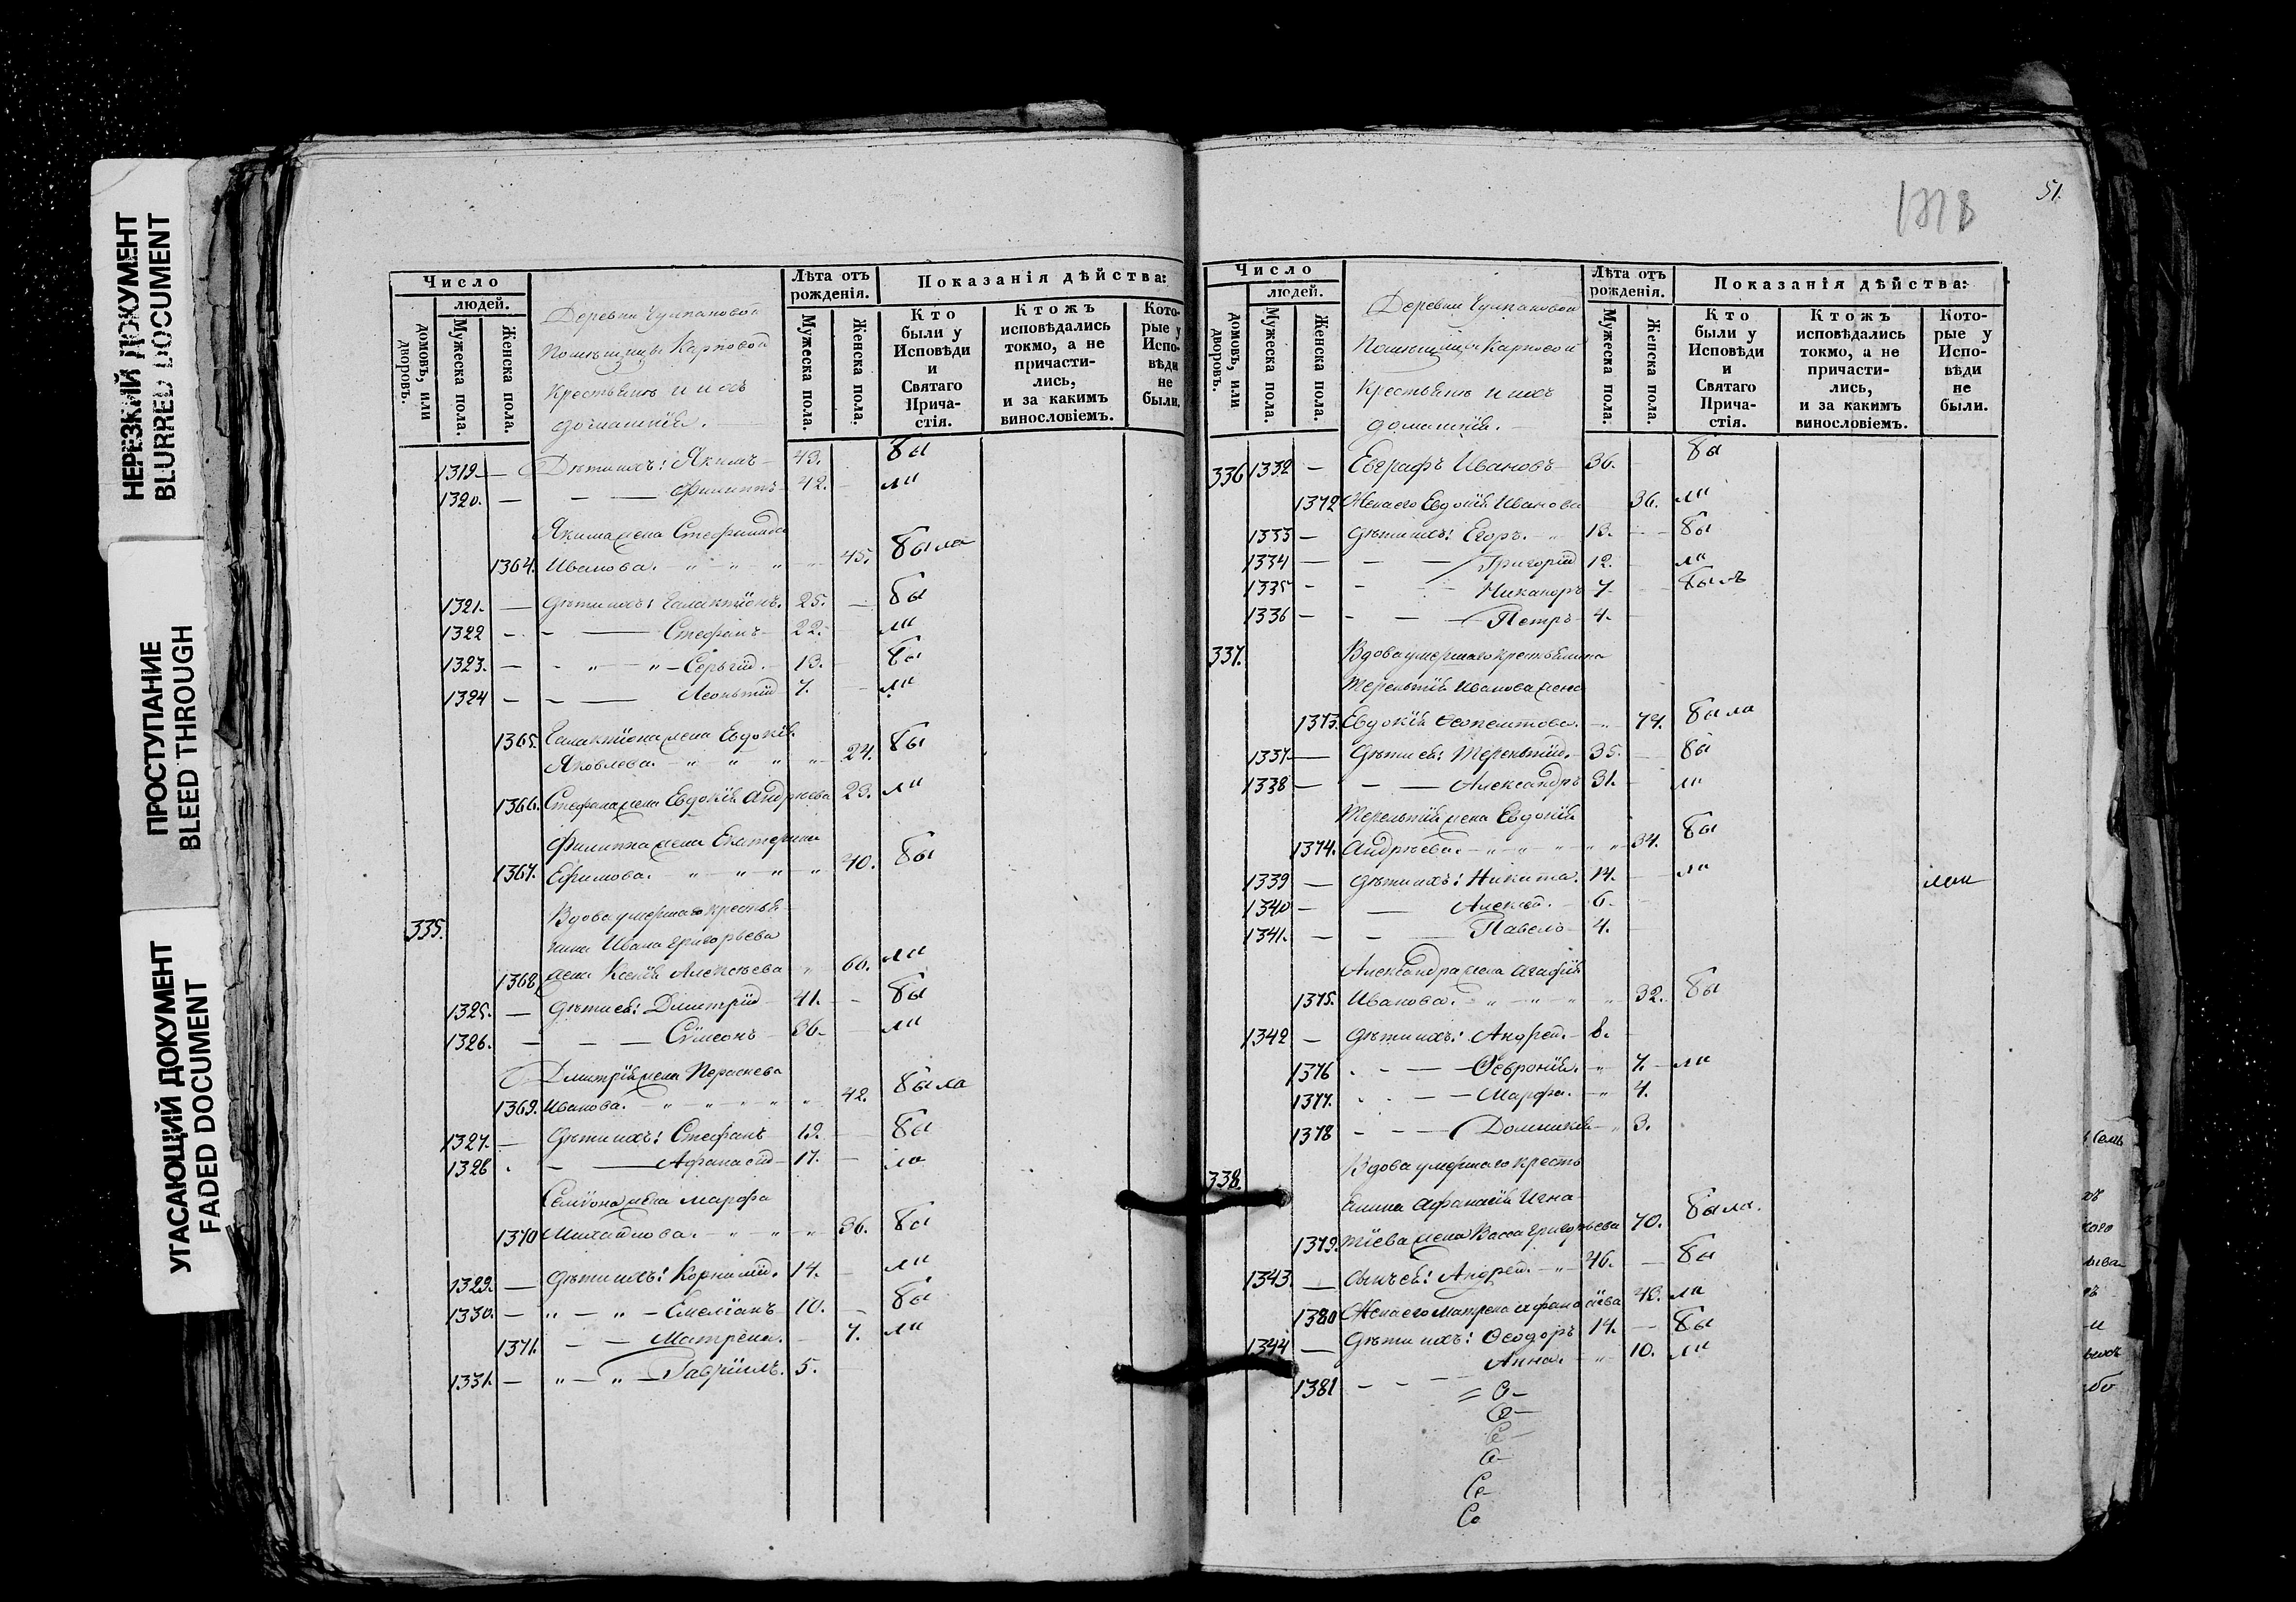 НЕРЕЗКИЙ ДОКУМЕНТ
BLURRED DOCUMENT
ПРОСТУПАНИЕ
BLEED THROUGH
УГАСАЮЩИЙ ДОКУМЕНТ
FADED DOCUMENT
Число
людей.
домовъ, или дворовъ.
Мужеска пола.
Женска пола.
Деревни Чулпановой
помѣщицы Карповой
крестьяне и ихъ
домашнія.
Лѣта отъ рожденія.
Мужеска пола.
Женска пола.
Показанія дѣйства:
Кто были у Исповѣди и Святаго Причастія.
Ктожъ исповѣдались токмо, а не причастились, и за какимъ винословіемъ.
Которые у Исповѣди не были.
1319. — Дѣти ихъ: Якимъ 43. бы
1320. — Филиппъ 42. ли
Якима жена Стефанида
1364. Иванова. 45. была
1321. — Дѣти ихъ: Галактіонъ. 25. бы
1322 — Стефанъ 22. ли
1323. — Сергѣй. 13. бы
1324 — Леонтій 7. ли
1365. Галактіона жена Евдокія
Яковлева. 24. бы
1366. Стефана жена Евдокія Андреева 23. ли
Филиппа жена Екатерина
1367. Ефимова. 40. бы
335. Вдова умершаго крестья-
нина Ивана Григорьева
1368 жена Ксенія Алексѣева 66. ли
1325. — Дѣти ея: Димитрій 41. бы
1326. — Сѵмеонъ 36. ли
Димитрія жена Параскева
1369. Иванова. 42. была
1327. — Дѣти ихъ: Стефанъ 19. бы
1328 — Афанасій 17. ли
Семіона жена Марфа
1370 Михайлова. 36. бы
1329. — Дѣти ихъ: Корнилій. 14. ли
1330. — Емеліанъ 10. бы
1371. — Матрена. 7. ли
1331. — Гавріилъ. 5.
51.
Число
людей.
домовъ, или дворовъ.
Мужеска пола.
Женска пола.
Деревни Чулпановой
помѣщицы Карповой
крестьяне и ихъ
домашнія.
Лѣта отъ рожденія.
Мужеска пола.
Женска пола.
Показанія дѣйства:
Кто были у Исповѣди и Святаго Причастія.
Ктожъ исповѣдались токмо, а не причастились, и за какимъ винословіемъ.
Которые у Исповѣди не были.
336 1332 — Евграфъ Ивановъ 36. бы
1372 Жена его Евдокія Иванова 36. ли
1333 — Дѣти ихъ: Егоръ. 13. бы
1334 — Григорій 12. ли
1335 — Никаноръ 7. былъ
1336 — Петръ 4.
337. Вдова умершаго крестьянина
Терентія Иванова жена
1373. Евдокія 74. была
1337 — Дѣти ея: Терентій. 35. бы
1338 — Александръ 31. ли
Терентія жена Евдокія
1374. Андреева. 34. бы
1339 — Дѣти ихъ: Никита. 14. ли
1340 — Алексѣй. 6.
1341. — Павелъ 4.
Александра жена Агафія
1375. Иванова. 32. бы
1342 — Дѣти ихъ: Андрей. 8.
1376 — Февронія. 7. ли
1377. — Марфа. 4.
1378 — Домникія 3.
338. Вдова умершаго кресть
янина Афанасія Игна-
1379. тіева жена Васса Григорьева 70. была.
1343. — Сынъ ея: Андрей. 46. бы
1380 Жена его Матрена Афанасіева 48. ли
1344 — Дѣти ихъ: Ѳеодоръ 14. бы
1381 — Анна. 10. ли